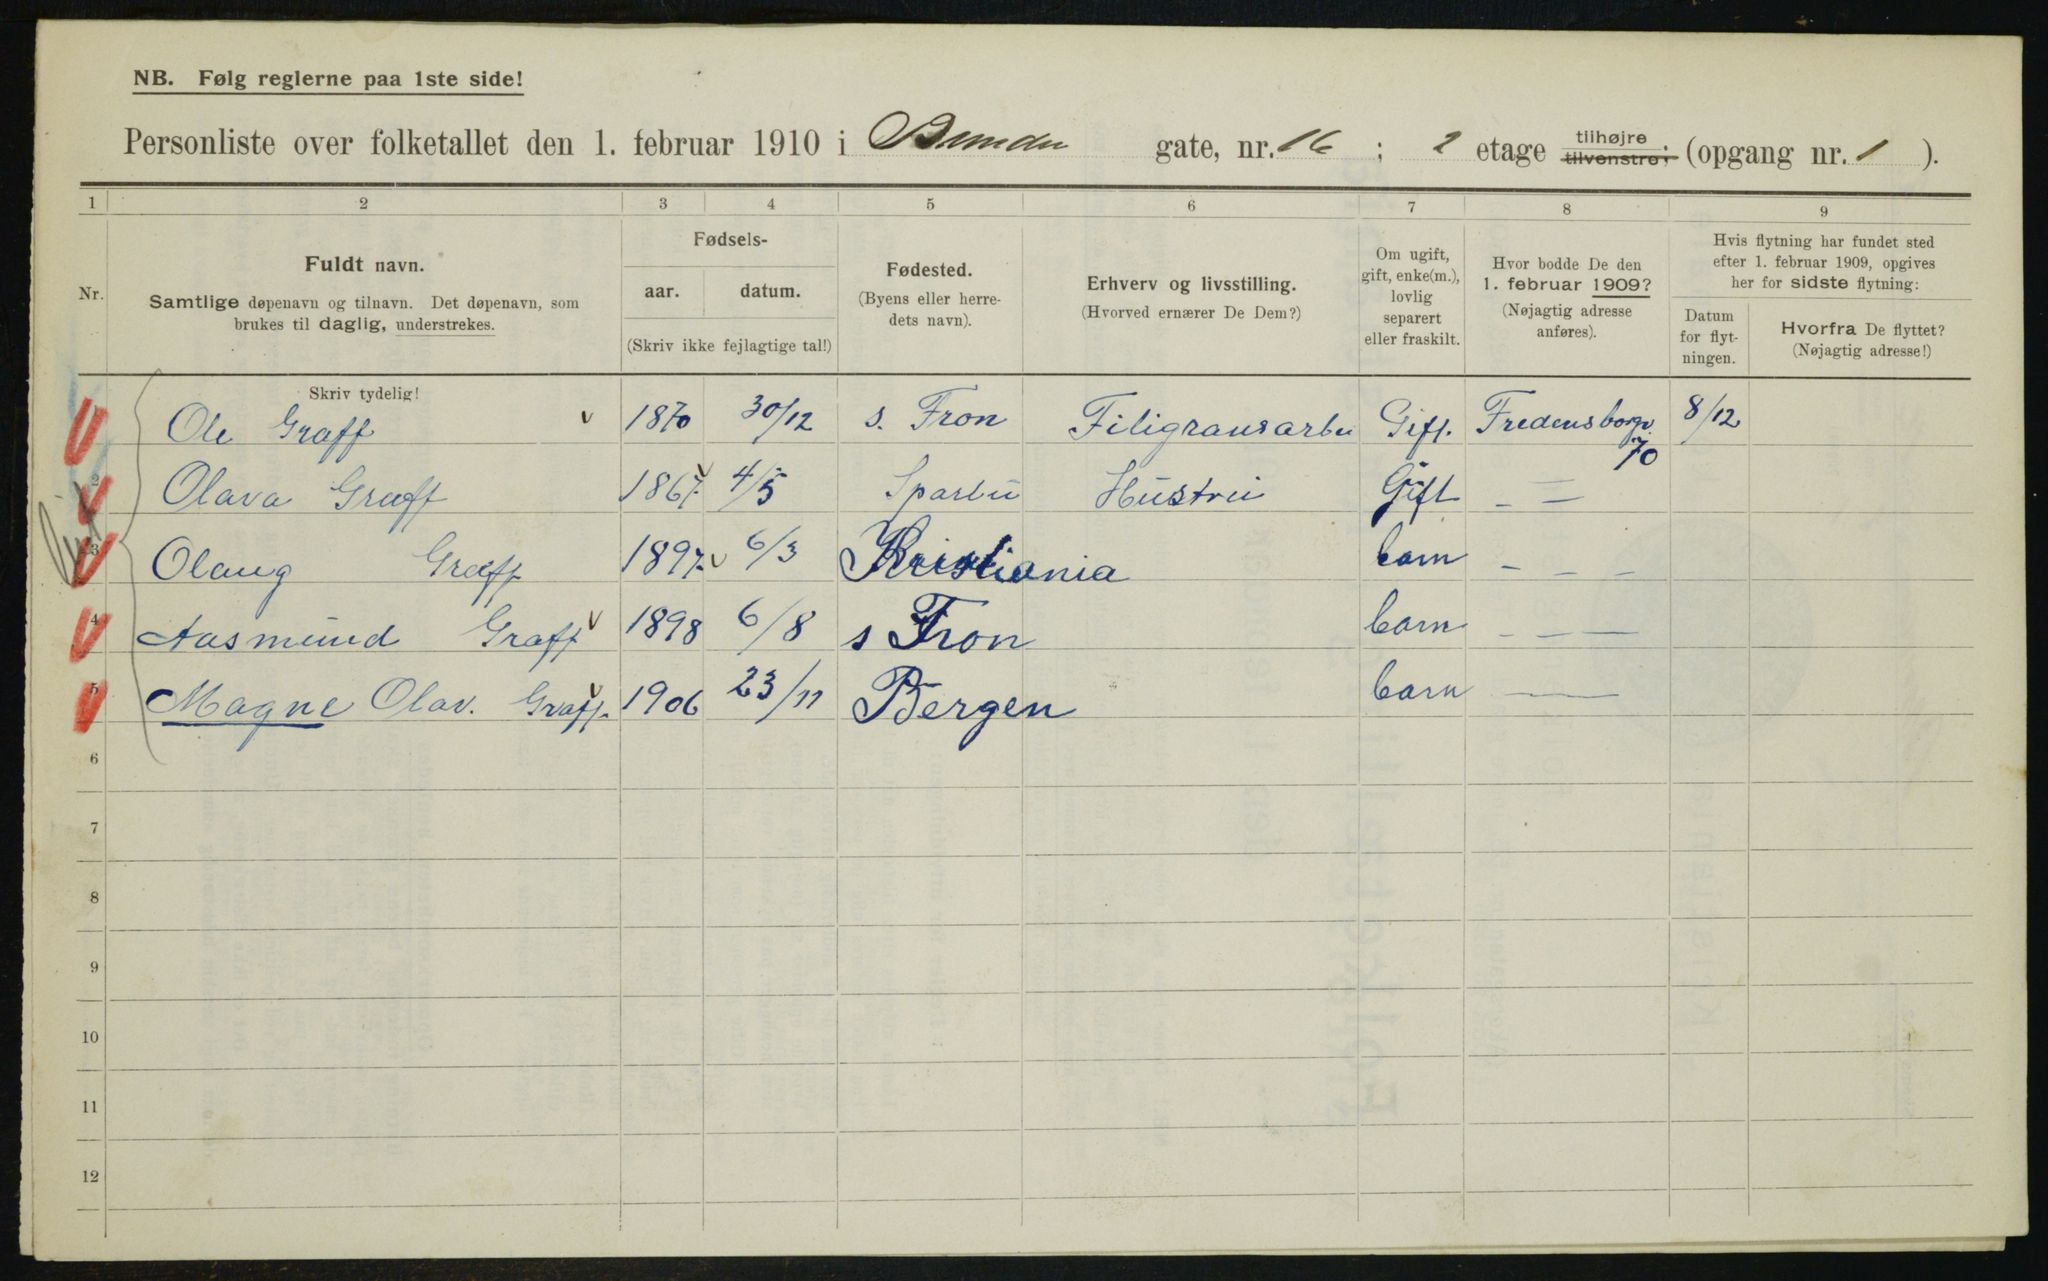 NB. Følg reglerne paa 1ste side!
Personliste over folketallet den 1. februar 1910 i gate, nr. 16 ; 2 etage tilhøjre, tilvenstre, (opgang nr. 1 ).
1 2 3 4 5 6 7 8 9
Nr.
Fuldt navn.
Samtlige døpenavn og tilnavn. Det døpenavn, som
brukes til daglig, understrekes.
Skriv tydelig!
Fødsels-
aar. datum.
(Skriv ikke fejlagtige tal!)
Fødested.
(Byens eller herre-
dets navn).
Erhverv og livsstilling.
(Hvorved ernærer De Dem?)
Om ugift,
gift, enke(m.),
lovlig
separert
eller fraskilt.
Hvor bodde De den
1. februar 1909?
(Nøjagtig adresse
anføres).
Hvis flytning har fundet sted
efter 1. februar 1909, opgives
her for sidste flytning:
Datum
for flyt-
ningen.
Hvorfra De flyttet?
(Nøjagtig adresse!)
Ole Graff v 1870 30/12 s. Fron Filigransarbei Gift. Fredensborgv. 70 8/12
2 Olava Graff 1867 v 4/5 Sparbu Hustru Gift - =
3 Olaug Graff 1897 v 6/3 Kristiania barn - - -
4 Aasmund Graff v 1898 6/8 s Fron barn - - -
5 Magne Olav. Graff v 1906 23/11 Bergen barn -
6
7
8
9
10
11
12